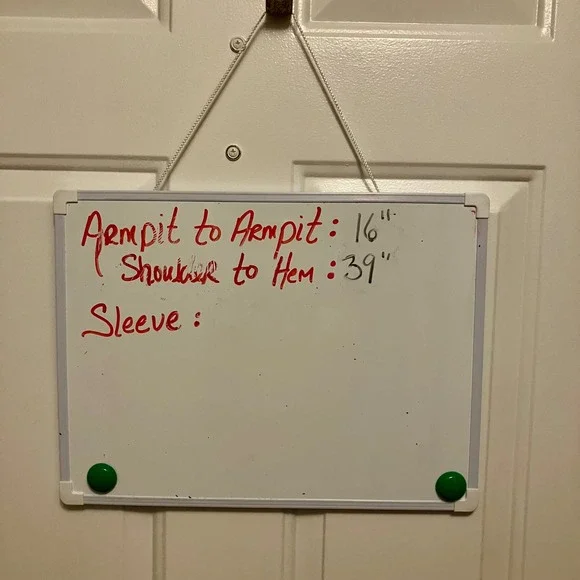 Armpit to Armpit: 16"
Shoulder to Hem: 39"
Sleeve: